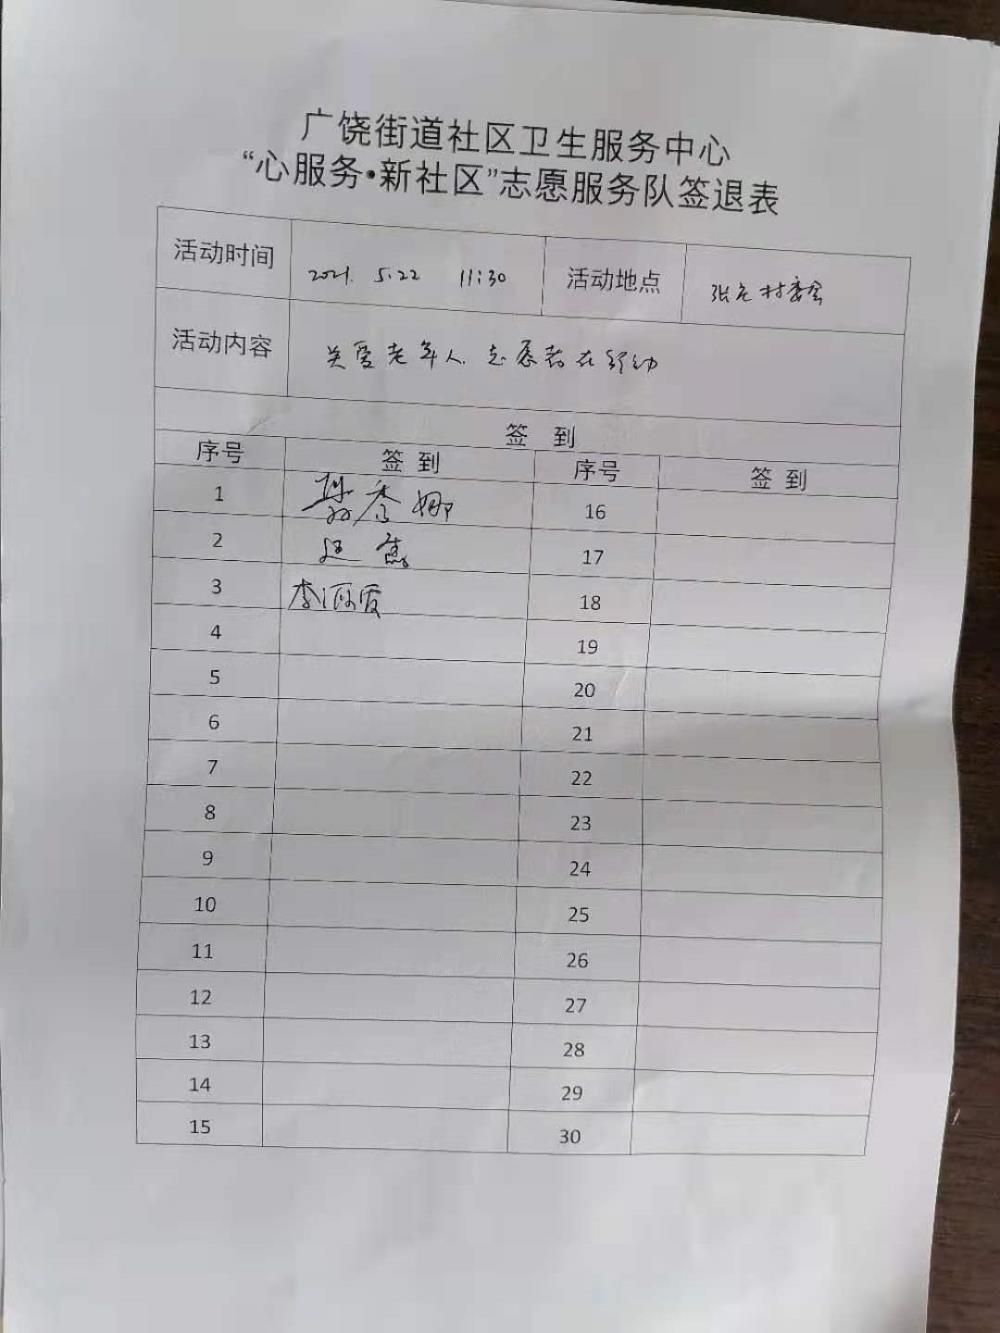 广饶街道社区卫生服务中心
“心服务•新社区”志愿服务队签退表
活动时间 2021. 5.22 11:30 活动地点 张庄村委会
活动内容 关爱老年人 志愿者在行动
签 到
序号 签 到 序号 签 到
1 娜 16
2 17
3 李 爱 18
4 19
5 20
6 21
7 22
8 23
9 24
10 25
11 26
12 27
13 28
14 29
15 30